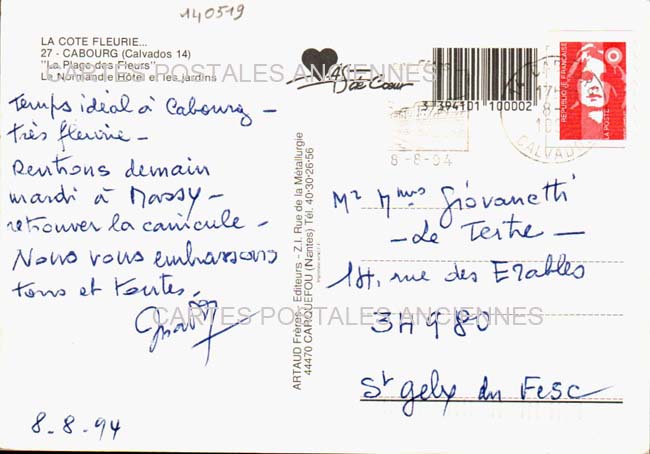 140519
LA COTE FLEURIE...
27 - CABOURG (Calvados 14)
"La Plage des Fleurs"
Le Normandie Hôtel et les jardins
CARTES POSTALES ANCIENNES
Temps idéal à Cabourg -
très fleurie -
Rentrons demain
mardi à Massy -
retrouver la canicule -
Nous vous embrassons
tous et toutes.
8-8-94
ARTAUD Frères, Editeurs - Z.I. Rue de la Métallurgie
44470 CARQUEFOU (Nantes) Tél. 40-30-26-56
de Cœur
3 394101 100002
8-8-94
CALVADOS
REPUBLIQUE FRANÇAISE
LA POSTE
Mr Mme Giovanetti
- Le Tertre -
rue des Erables
34980
St gely du Fesc
CARTES POSTALES ANCIENNES